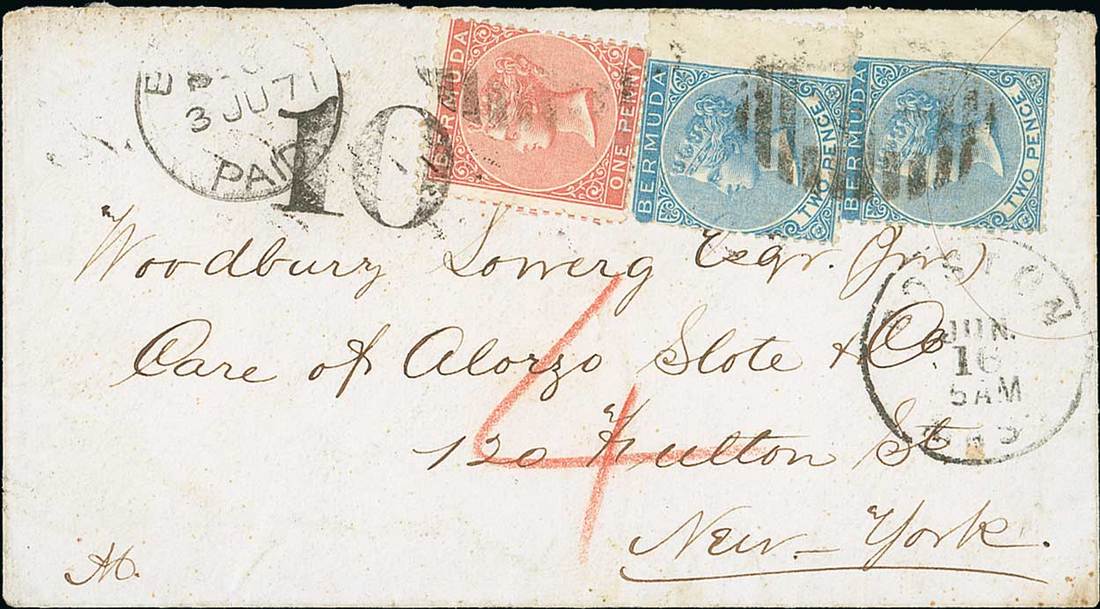 3 JU 71
PAID
10
BERMUDA ONE PENNY
BERMUDA TWO PENCE
BERMUDA TWO PENCE
Woodbury Lowerg Esqr. (Jnr)
Care of Alonzo Slote & Co.
120 Fulton St.
New-York.
4
BOSTON
JUN.
16
5 AM
M.